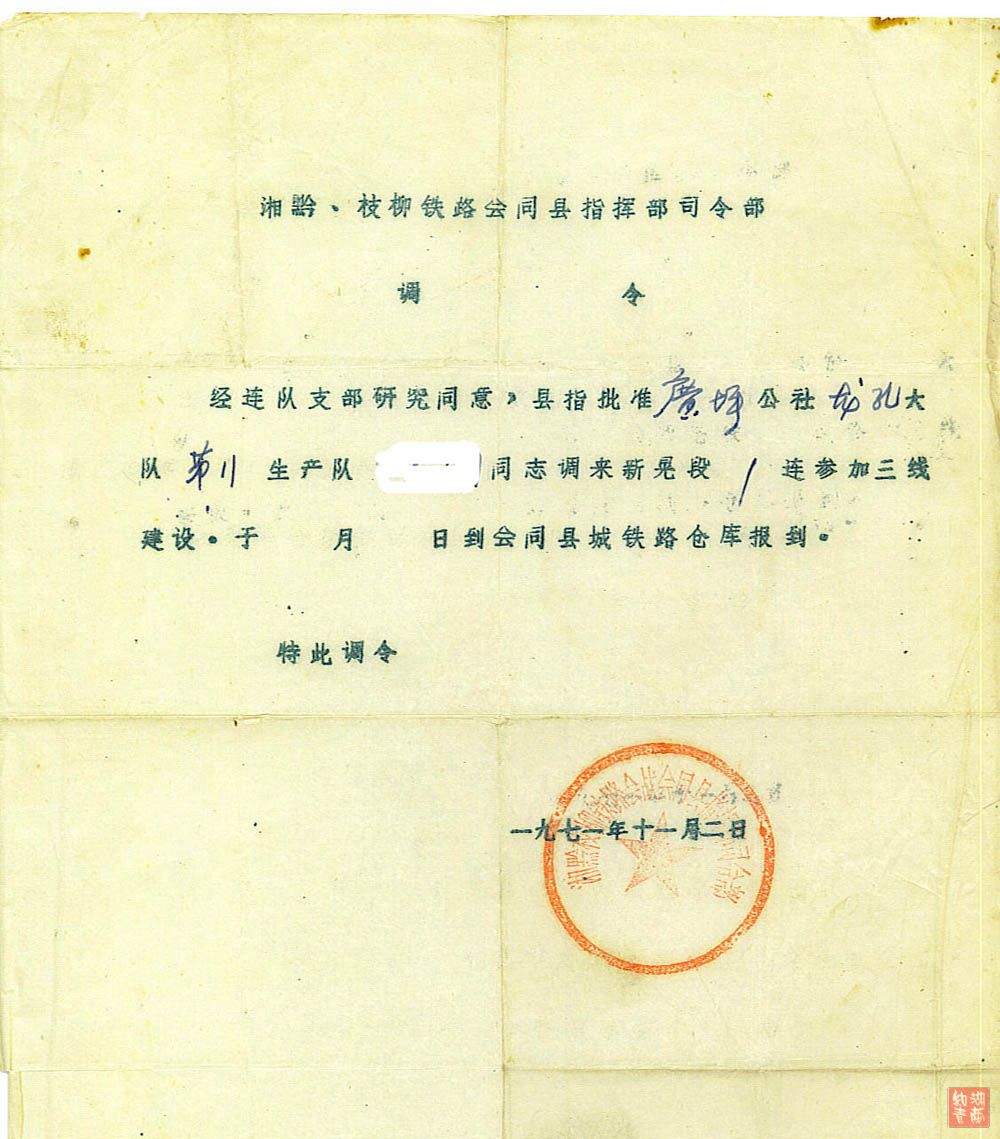 湘黔、枝柳铁路会同县指挥部司令部
调 令
经连队支部研究同意，县指批准廣坪公社龙孔大
队第11生产队 同志调来新晃段1连参加三线
建设。于 月 日到会同县城铁路仓库报到。
特此调令
一九七一年十一月二日
湖南知青